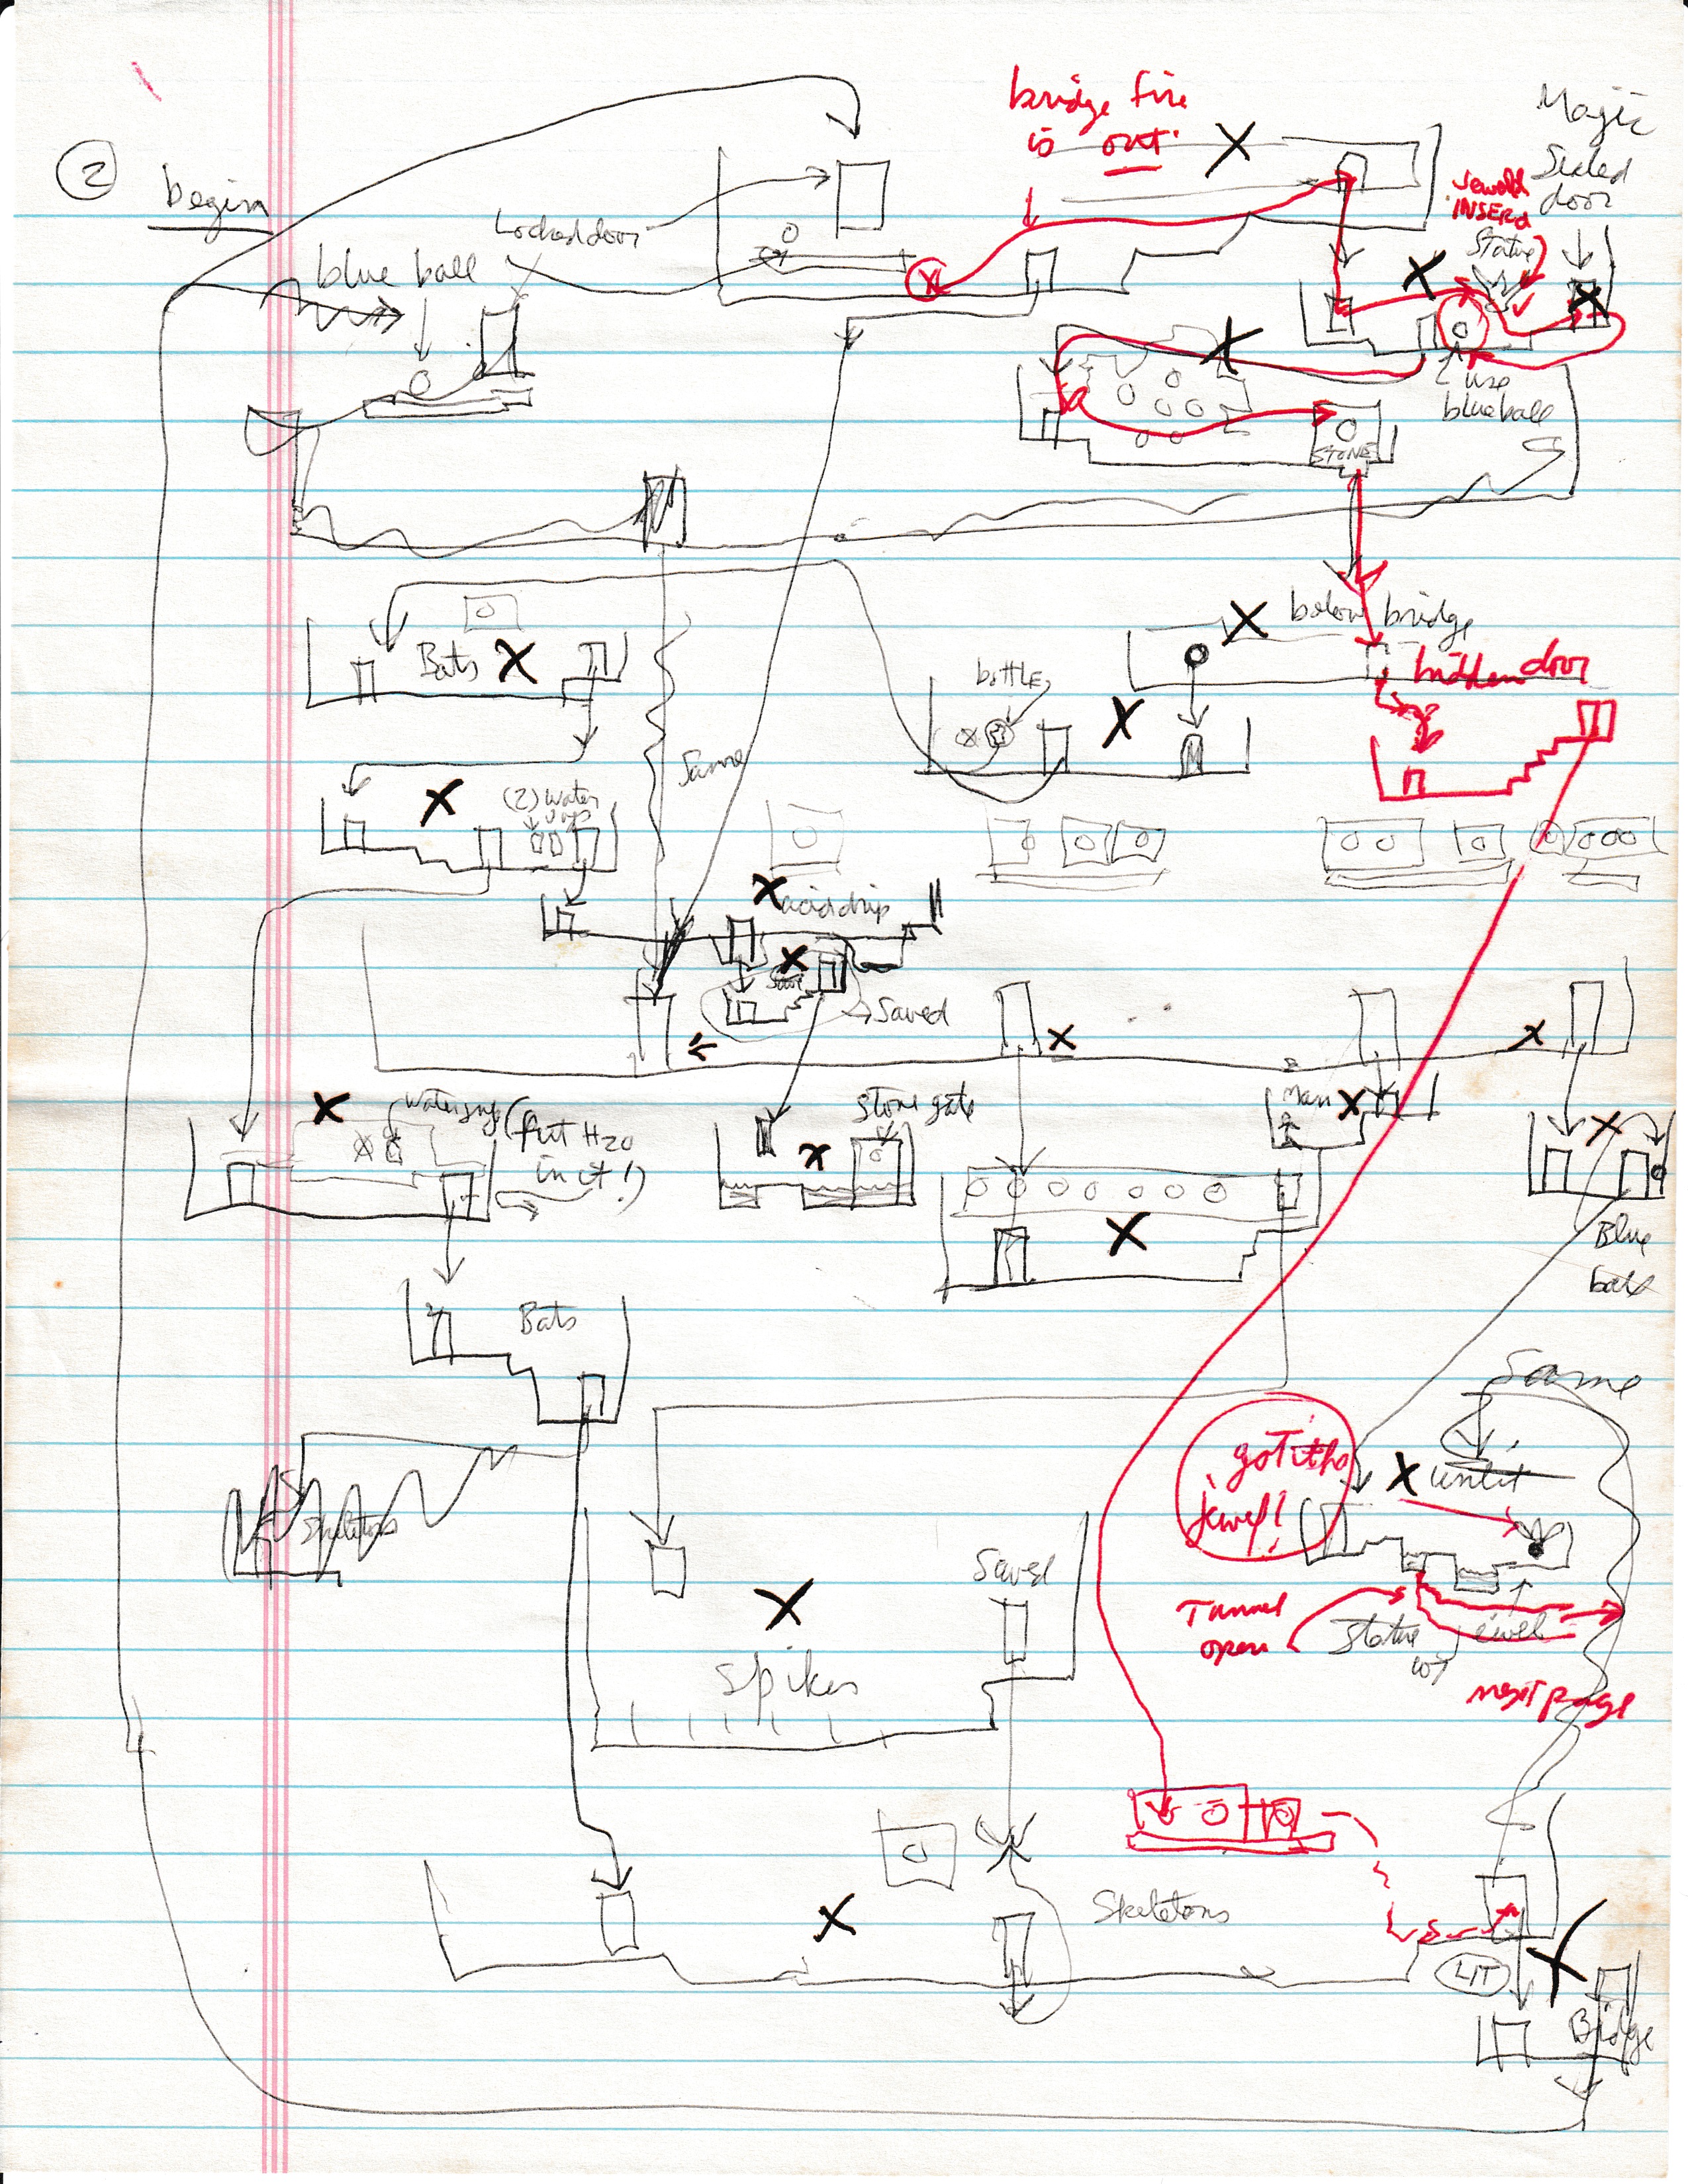 bridge fire
is out.
Magic
Sealed
door
2
begin
Jeweld
INSERd
Locked door
Statue
blue ball
use
blue ball
STONE
below bridge
Bats
hidden door
bottle
Same
(2) Water
Jugs
acid drip
Save
Saved
Man
stone gate
Water jug (put H20
in it!)
Blue
ball
Bats
Same
got the
jewel!
unlit
Skeletons
Saved
Tunnel
open
Statue
w/
jewel
Spikes
next page
Skeletons
LIT
Bridge